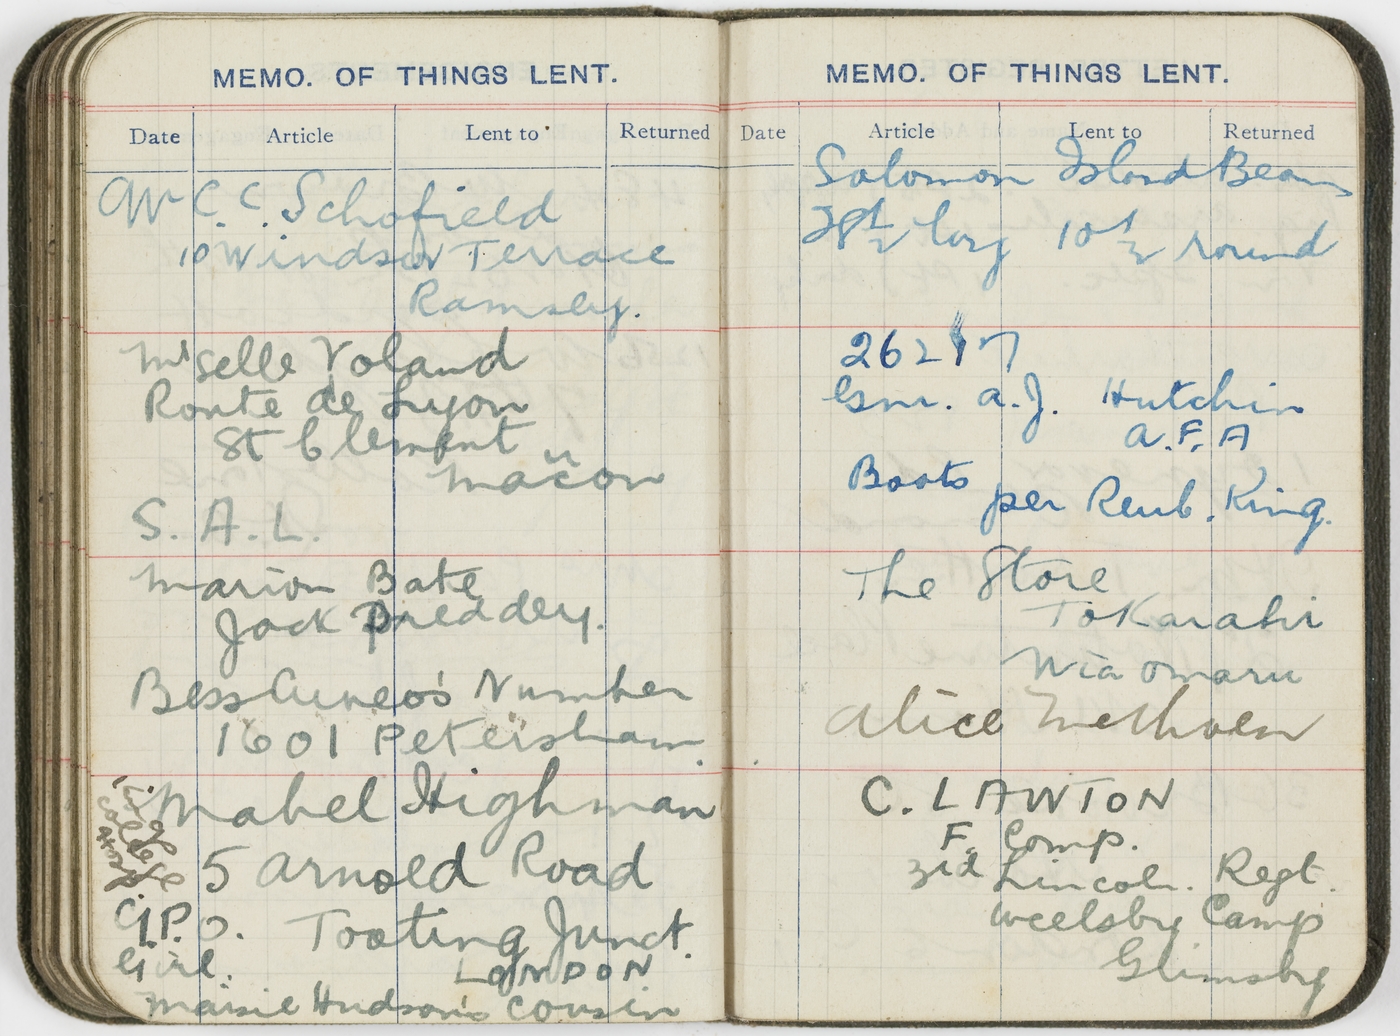 MEMO. OF THINGS LENT.
Date Article Lent to Returned
Mr C. C. Schofield
10 Windsor Terrace
Ramsey.
M'selle Voland
Route de Lyon
St Clement
Macon
S. A. L.
Marion Bate
Jack Breddery.
Bess Cuneo's Number
1601 Petersham.
Mabel Highman
5 Arnold Road
G.P.O. Tooting Junct.
Girl. LONDON
Maisie Hudson's Cousin
MEMO. OF THINGS LENT.
Date Article Lent to Returned
Solomon Island Beans
28 1/2 long 10 1/2 round
26217
Gnr. A. J. Hutchin
A. F. A
Boots
per Reub. King.
The Store
Tokarahi
Via Omaru
Alice Methven
C. LAWTON
F. Comp.
3rd Lincoln. Regt.
Weelsby Camp
Grimsby